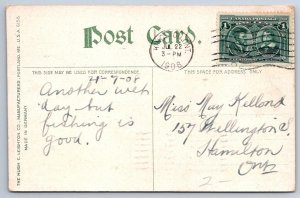 Post Card.
THIS SIDE MAY BE USED FOR CORRESPONDENCE
THIS SPACE FOR ADDRESS ONLY.
JUL 22
3-PM
1908
Another wet
day but
fishing is
good.
Miss May Kelland
157 Wellington S.
Hamilton
Ont
THE HUGH C. LEIGHTON CO., MANUFACTURERS, PORTLAND, ME., U.S.A.
MADE IN GERMANY